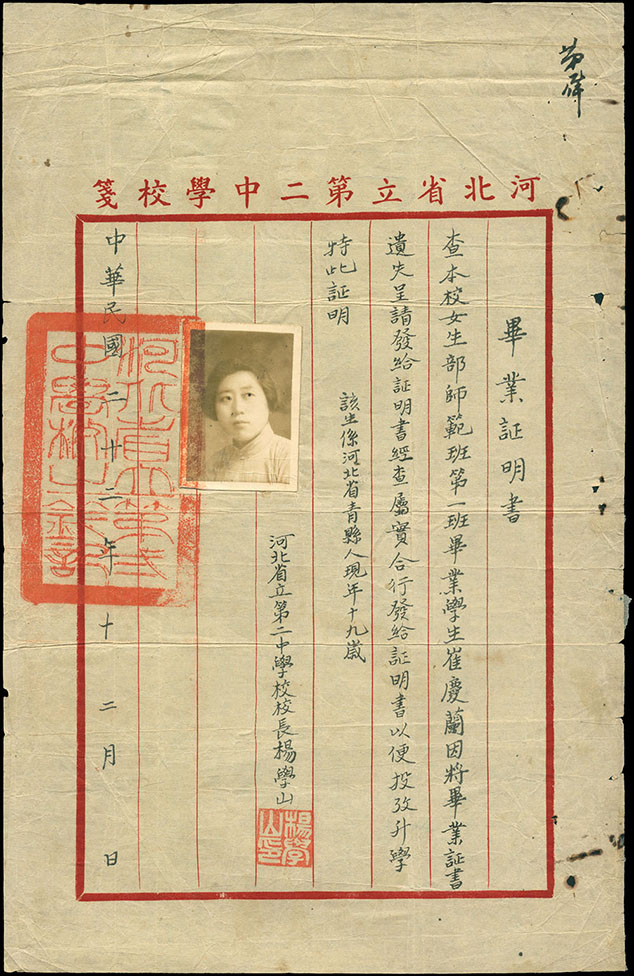 河北省立第二中學校箋
畢業証明書
查本校女生部師範班第一班畢業學生崔慶蘭因將畢業証書
遺失呈請發給証明書經查屬實合行發給証明書以便投攷升學
特此証明
該生係河北省青縣人現年十九歲
河北省立第二中學校校長楊學山
楊學山印
中華民國二十二年十二月 日
河北省立第弍
中學校之鈐記